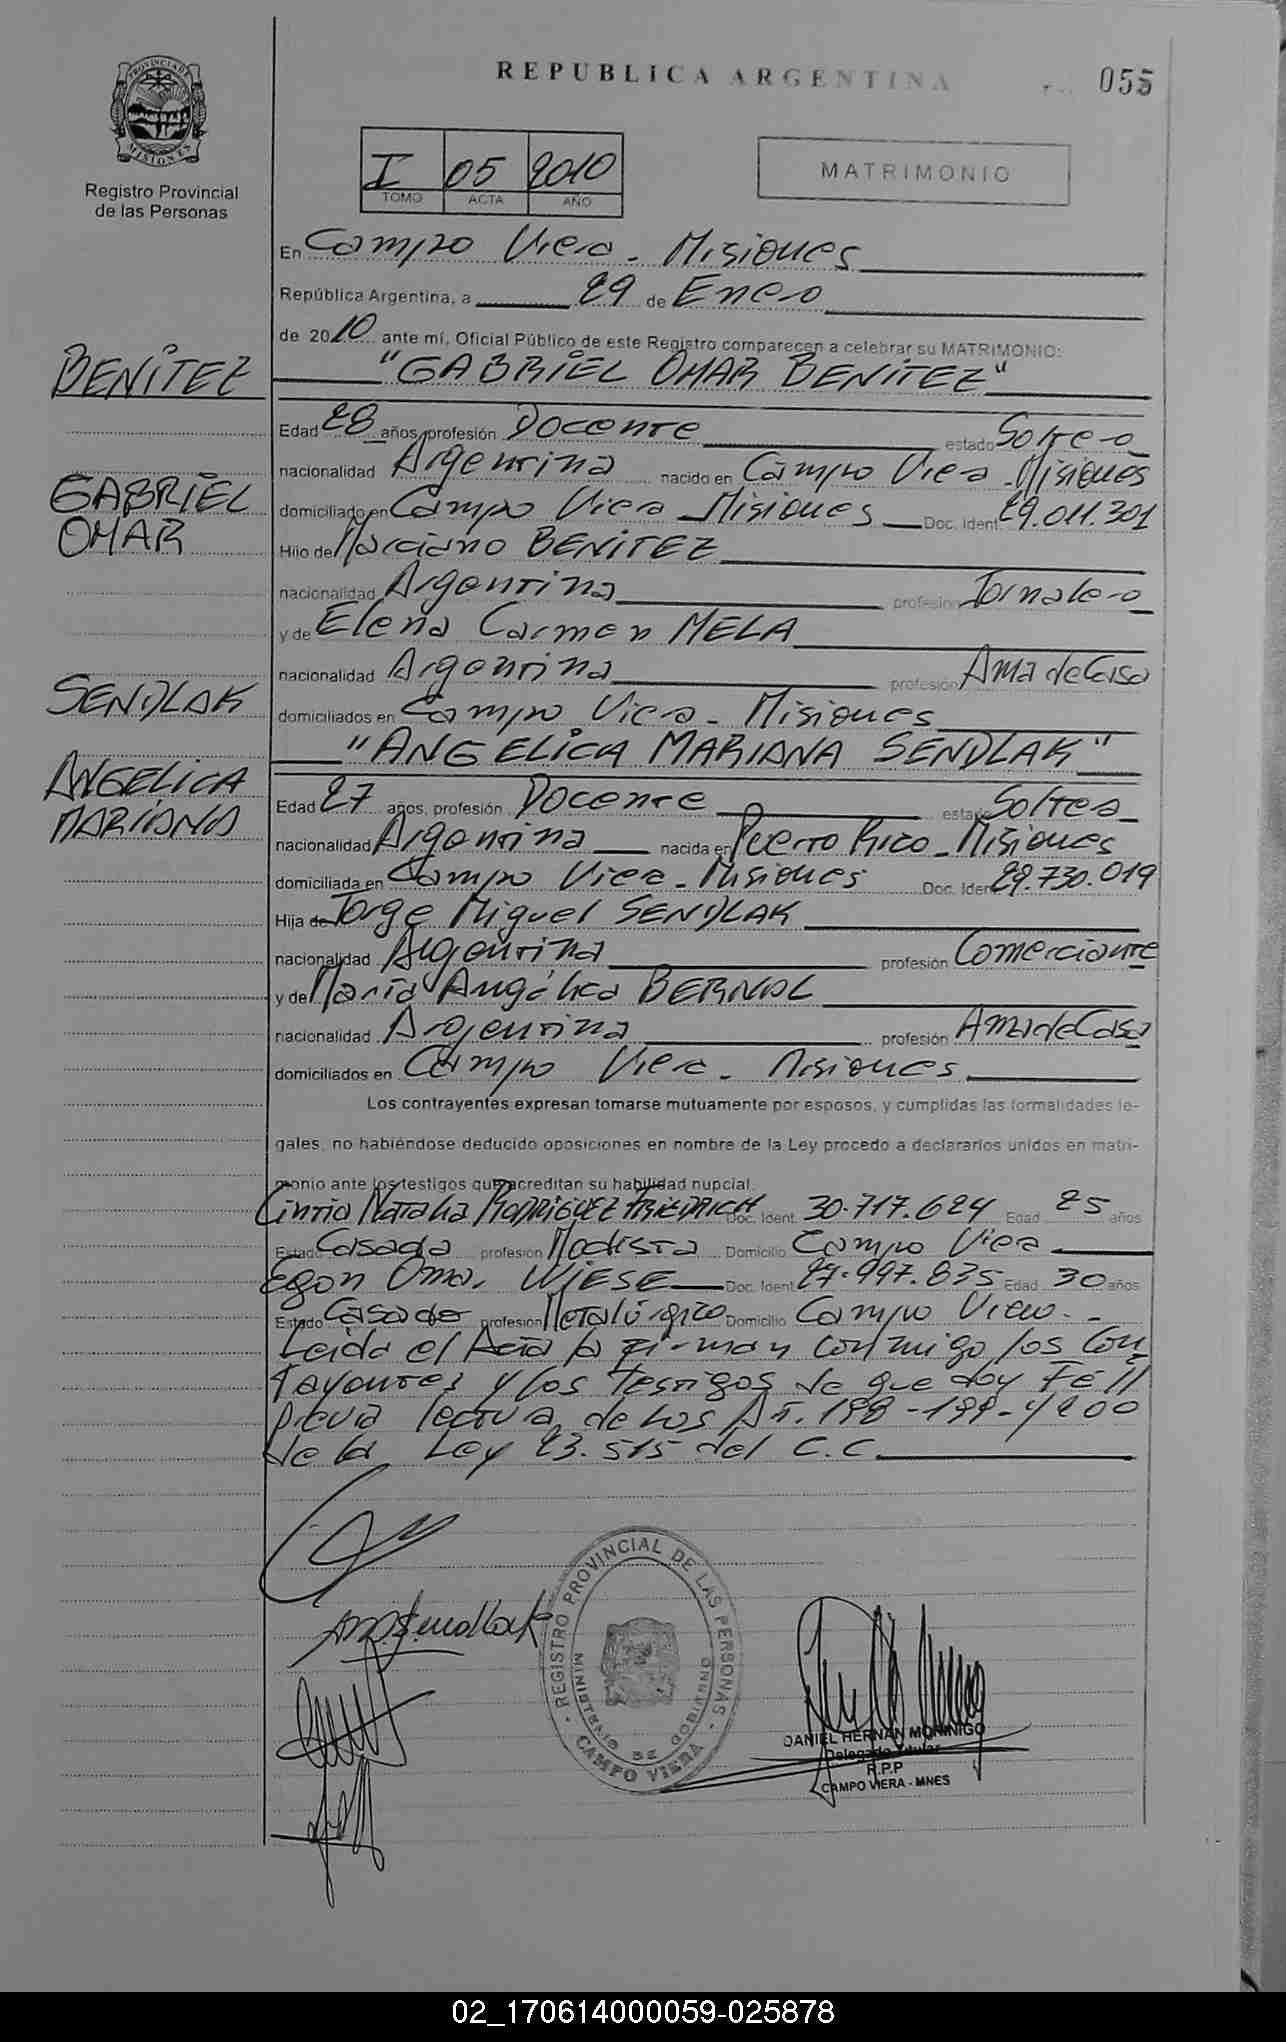 REPUBLICA ARGENTINA
055
PROVINCIA DE MISIONES
Registro Provincial
de las Personas
I 05 2010
TOMO ACTA AÑO
MATRIMONIO
En Campo Viera - Misiones
República Argentina, a 29 de Enero
de 2010 ante mí, Oficial Público de este Registro comparecen a celebrar su MATRIMONIO:
BENITEZ
"GABRIEL OMAR BENITEZ"
Edad 28 años, profesión Docente estado Soltero
nacionalidad Argentina nacido en Campo Viera - Misiones
GABRIEL
OMAR
domiciliado en Campo Viera - Misiones Doc. Ident. 29.011.301
Hijo de Marciano BENITEZ
nacionalidad Argentina profesión Jornalero
y de Elena Carmen MELA
nacionalidad Argentina profesión Ama de Casa
SENDLAK
domiciliados en Campo Viera - Misiones
"ANGELICA MARIANA SENDLAK"
ANGELICA
MARIANA
Edad 27 años, profesión Docente estado Soltera
nacionalidad Argentina nacida en Puerto Rico - Misiones
domiciliada en Campo Viera - Misiones Doc. Ident. 29.730.019
Hija de Jorge Miguel SENDLAK
nacionalidad Argentina profesión Comerciante
y de María Angélica BERNAL
nacionalidad Argentina profesión Ama de Casa
domiciliados en Campo Viera - Misiones
Los contrayentes expresan tomarse mutuamente por esposos, y cumplidas las formalidades le-
gales, no habiéndose deducido oposiciones en nombre de la Ley procedo a declararlos unidos en matri-
monio ante los testigos que acreditan su habilidad nupcial.
Cintia Natalia RODRIGUEZ FRIEDRICH Doc. Ident. 30.717.624 Edad 25 años
Estado Casada profesión Modista Domicilio Campo Viera
Egon Omar WIESE Doc. Ident. 27.997.835 Edad 30 años
Estado Casado profesión Metalúrgico Domicilio Campo Viera -
Leida el Acta la firman conmigo los Con
trayentes y los Testigos de que doy Fé //
previa lectura de los Art. 198 - 199 - y 200
de la Ley 23.515 del C.C.
AM Sendlak
REGISTRO PROVINCIAL DE LAS PERSONAS
MINISTERIO DE GOBIERNO
CAMPO VIERA
DANIEL HERNAN MORINIGO
Delegado Titular
R.P.P
CAMPO VIERA - MNES
02_170614000059-025878